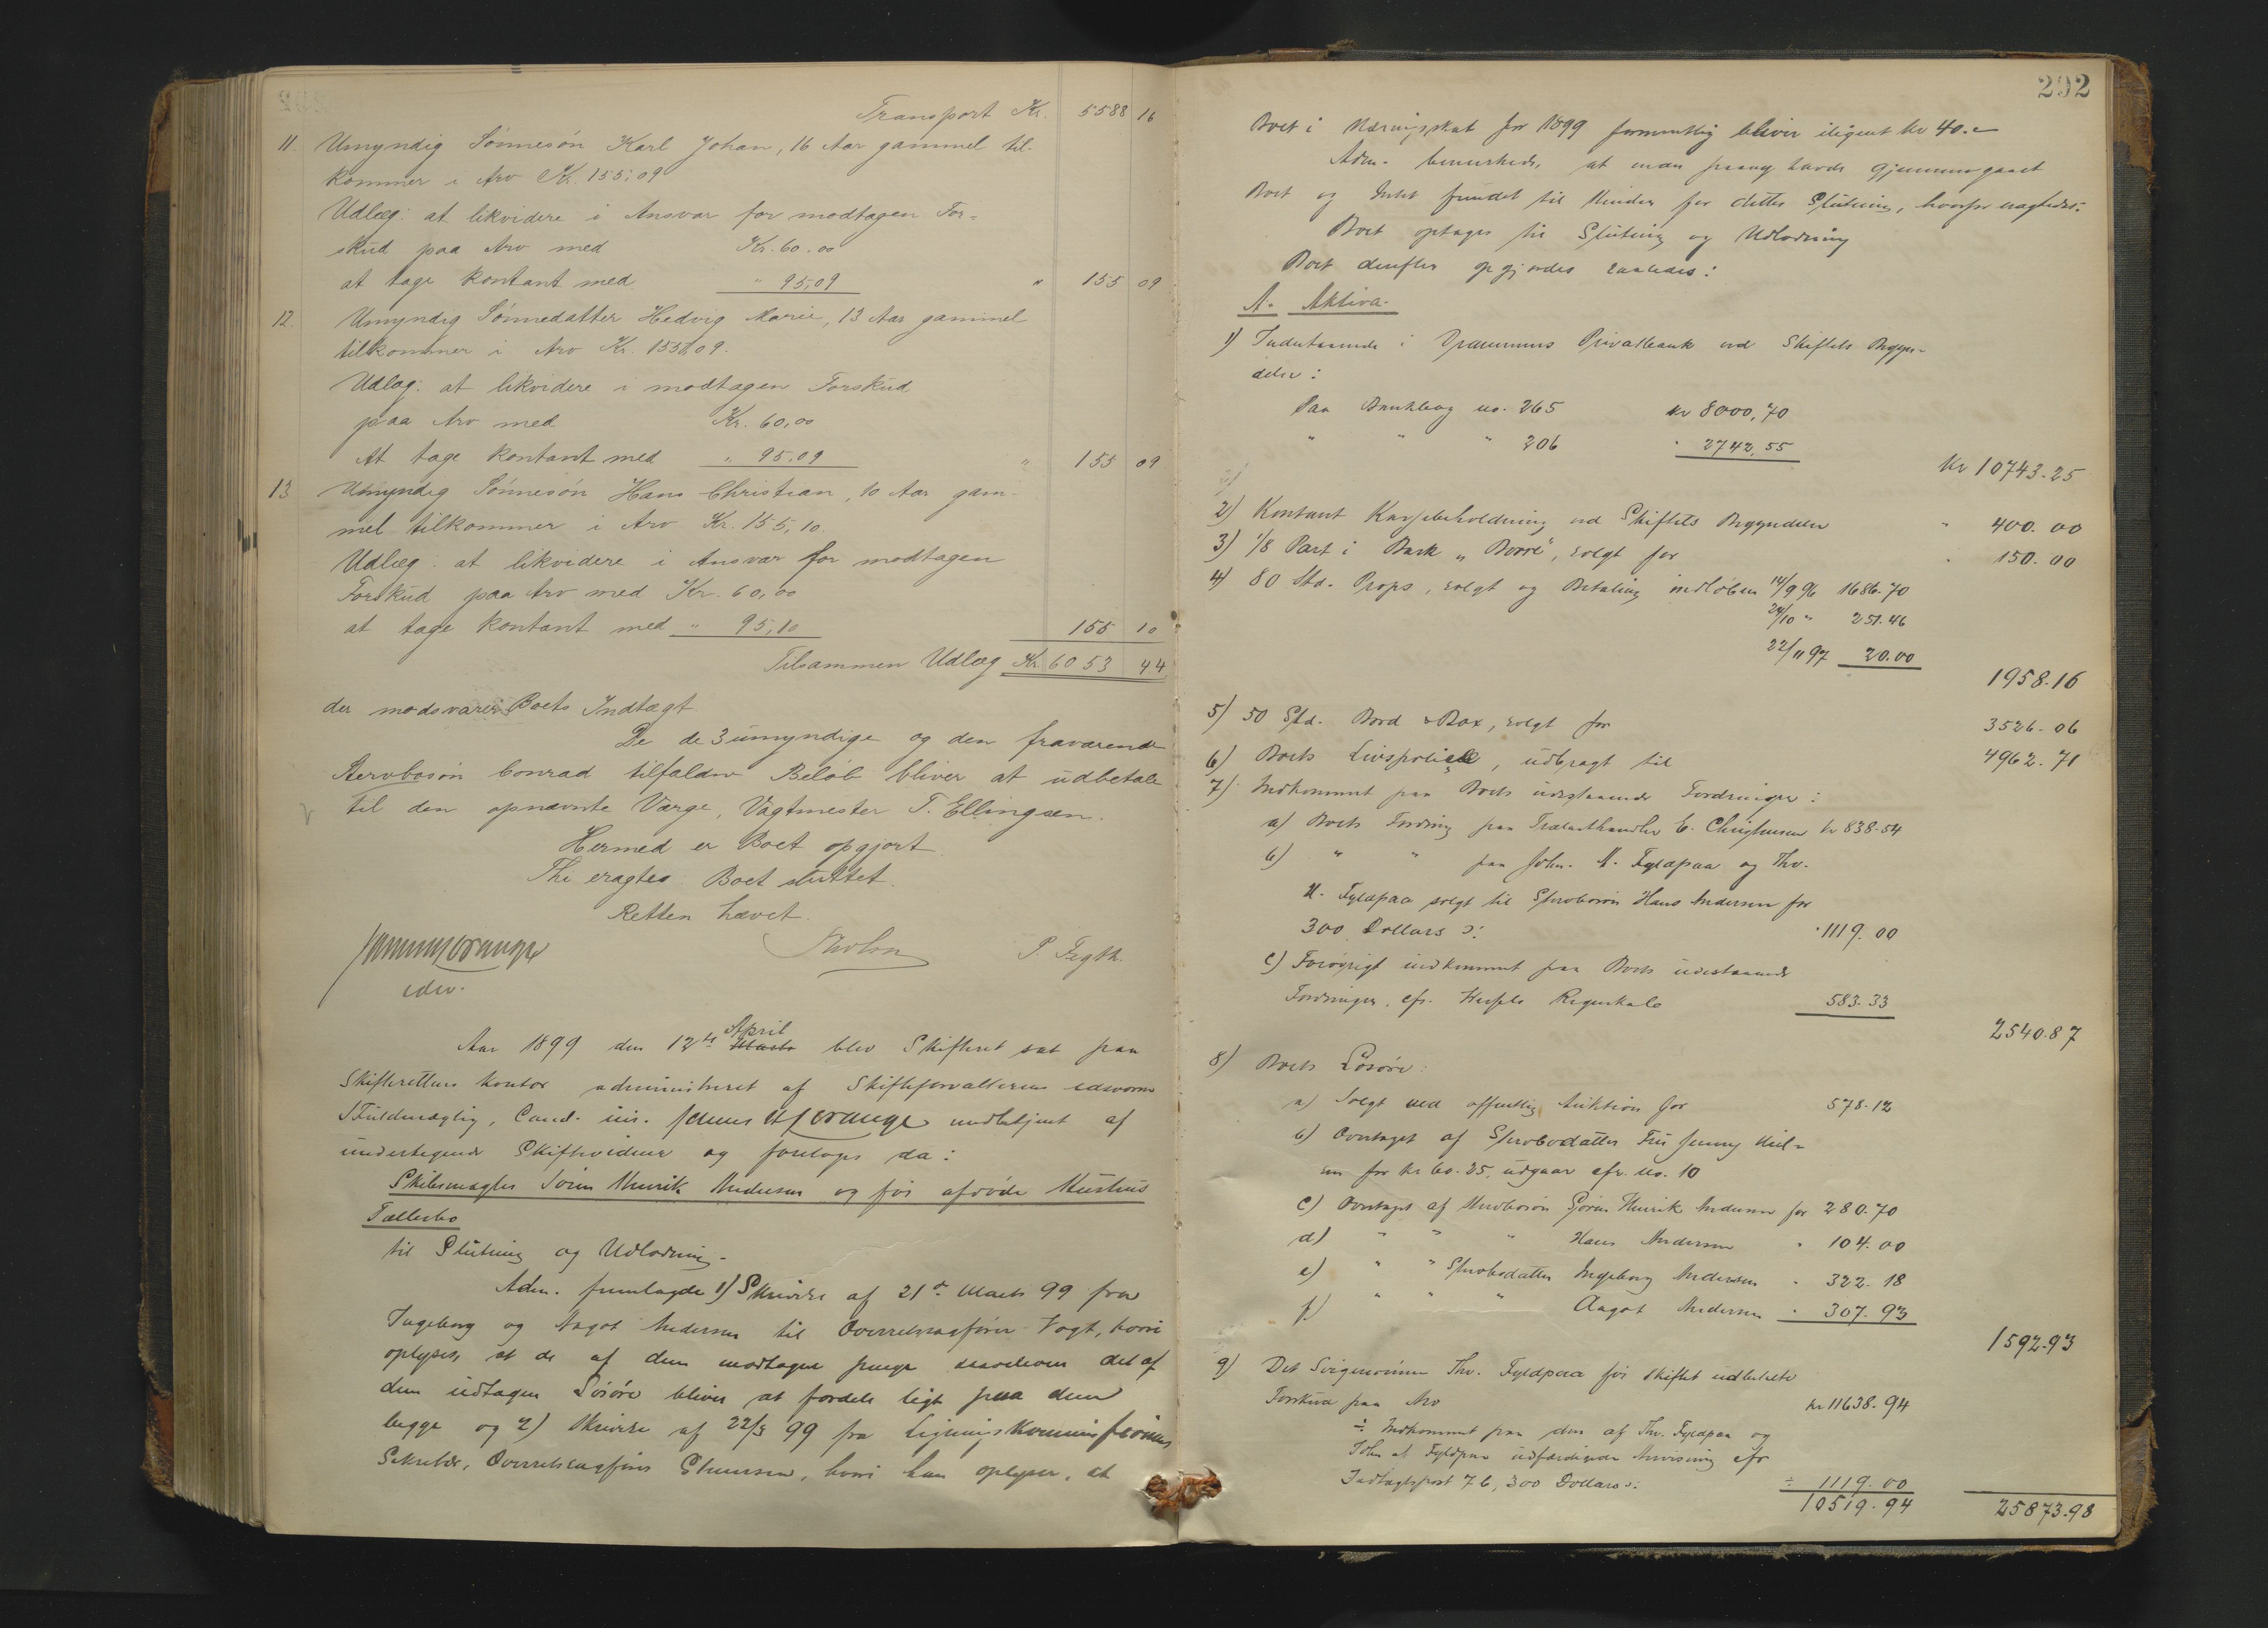 Transport Kr. 5588 16
11. Umyndig Sønnesøn Karl Johan, 16 Aar gammel til-
kommer i Arv Kr. 155,09
Udlæg: at likvidere i Ansvar for modtagen For-
skud paa Arv med Kr. 60.00
at tage kontant med " 95,09 " 155 09
12. Umyndig Sønnedatter Hedvig Marie, 13 Aar gammel
tilkommer i Arv Kr. 155,09.
Udlæg: at likvidere i modtagen Forskud
paa Arv med Kr. 60,00
At tage kontant med " 95.09 " 155 09
13 Umyndig Sønnesøn Hans Christian, 10 Aar gam-
mel tilkommer i Arv Kr. 155,10.
Udlæg: at likvidere i Ansvar for modtagen
Forskud paa Arv med Kr. 60,00
at tage kontant med " 95,10 155 10
Tilsammen Udlæg Kr. 6053 44
der modsvarer Boets Indtægt
De de 3 umyndige og den fraværende
Stervbosøn Conrad tilfaldne Beløb bliver at udbetale
til den opnævnte Værge, Vagtmester T. Ellingsen.
Hermed er Boet opgjort
Thi eragtes Boet sluttet.
Retten hævet.
edsv.
Aar 1899 den 12te April Marts blev Skifteret sat paa
Skifterettens Kontor administreret af Skifteforvalterens edsvorne
Fuldmægtig, Cand. jur. medbetjent af
undertegnede Skiftevidner og foretoges da:
Skibsmægler Søren Henrik Andersen og før afdøde Hustrus
Fællesbo
til Slutning og Udlodning.
Adm. fremlagde 1) Skrivelse af 21de Marts 99 fra
Ingeborg og Aagot Andersen til Overretssagfører Vogt, hvori
oplyses, at de af dem modtagne penge saavelsom det af
dem udtagne Løsøre bliver at fordele ligt paa dem
begge og 2) Skrivelse af 22/3 99 fra Ligningskommissionens
Sekretær, Overretssagfører hvori han oplyser, at
292
Boet i Næringsskat for 1899 formentlig bliver ilignet kr 40.-
Adm. bemærkede, at man havde gjennemgaaet
Boet og Intet fundet til Hinder for dettes Slutning, hvorfor eragtedes:
Boet optages til Slutning og Udlodning
Boet derefter opgjordes saaledes:
A. Aktiva.
1) Indestaaende i Drammens Privatbank ved Skiftets Begyn-
delse:
Paa Bankbog no. 265 kr 8000,70
" " " 206 " 2742,55
kr 10743.25
2) Kontant Kassebeholdning ved Skiftets Begyndelse " 400.00
3) 1/8 Part i Bark "Borre", solgt for " 150.00
4) 80 Std. Props, solgt og Betaling indløben 14/9 96 1686.70
24/10 " 251.46
22/11 97 20.00
1958.16
5) 50 Std. Bord & Box, solgt for 3526.06
6) Boets Livspolice, udbragt til 4962.71
7) Indkommet paa Boets udestaaende Fordringer:
a) Boets Fordring paa Trælasthandler E. Christensen kr 838.54
b) " " paa John. A. Fyldpaa og Thv.
H. Fyldpaa solgt til Stervbosøn Hans Andersen for
300 Dollars ɔ: " 1119.00
c) Forøvrigt indkommet paa Boets udestaaende
Fordringer, cfr. Regnskab 583.33
2540.87
8) Boets Løsøre:
a) Solgt ved offentlig Auktion for 578.12
b) Overtaget af Stervbodatter Fru Jenny Niel-
sen for kr 60.25, udgaar cfr. no. 10
c) Overtaget af Stervbosøn Søren Henrik Andersen for 280.70
d) " " " Hans Andersen " 104.00
e) " " Stervbodatter Ingeborg Andersen " 322.18
f) " " " Aagot Andersen " 307.93
1592.93
9) Det Svigersønnen Thv. Fyldpaa før skiftet udbetalte
Forskud paa Arv kr 11638.94
÷ Indkommet paa den af Thv. Fyldpaa og
John A. Fyldpaa udfærdigede Anvisning cfr
Indtægtspost 7 b, 300 Dollars ɔ: ÷ 1119.00
10519.94 25873.98